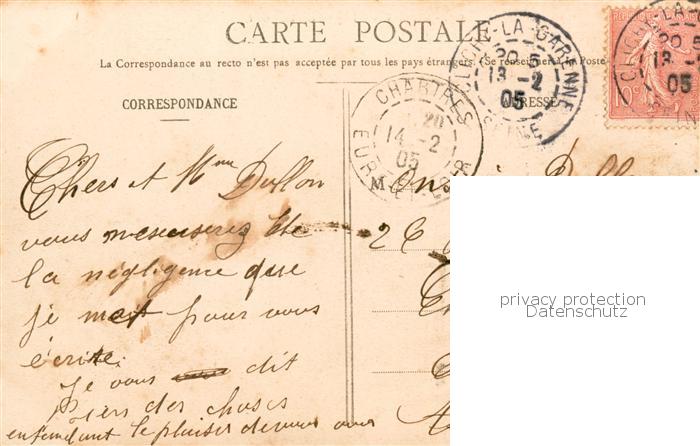 CARTE POSTALE
La Correspondance au recto n'est pas acceptée par tous les pays étrangers. (Se renseigner à la Poste
CORRESPONDANCE
ADRESSE
CLICHY-LA-GARENNE
20 5
13 -2
05
SEINE
CHARTRES
20
14 -2
05
EURE-ET-LOIR
Chers et Mme Dullon
vous
la négligence que
je met pour vous
écrire.
Je vous dit
biens des choses
entendant le plaisir de vous voir
M
26
privacy protection
Datenschutz